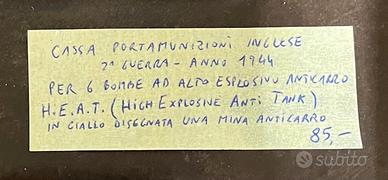 CASSA PORTAMUNIZIONI INGLESE
2ª GUERRA - ANNO 1944
PER 6 BOMBE AD ALTO ESPLOSIVO ANTICARRO
H.E.A.T. (HIGH EXPLOSIVE ANTI TANK)
IN GIALLO DISEGNATA UNA MINA ANTICARRO
85,-
subito